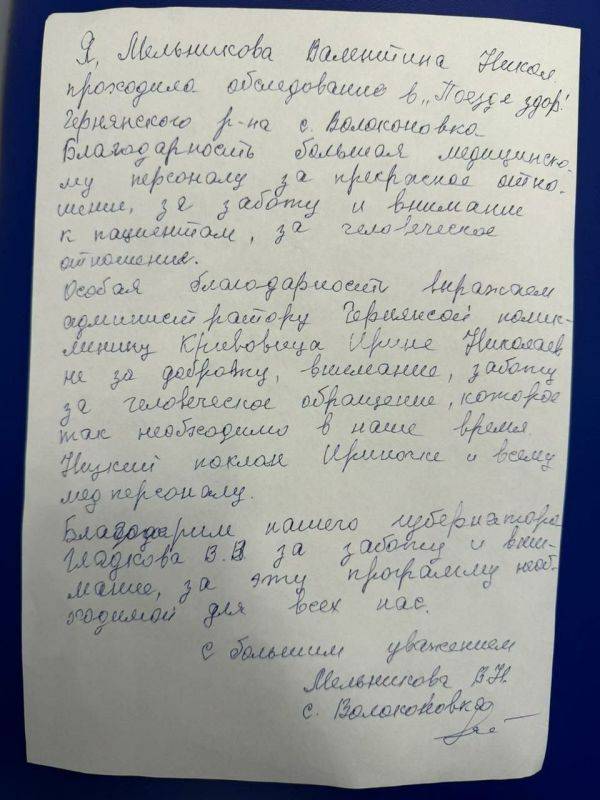 Я, Мельникова Валентина Никол.
проходила обследование в „Поезде здор!
Чернянского р-на с. Волоконовка
Благодарность большая медицинско-
му персоналу за прекрасное отно-
шение, за заботу и внимание
к пациентам, за человеческое
отношение.
Особая благодарность выражаем
администратору Чернянсой полик-
линику Кривовица Ирине Николаев
не за доброту, внимание, заботу
за человеческое обращение, которое
так необходимо в наше время
Низкий поклон Ириночке и всему
мед персоналу.
Благодарим нашего губернатора
Гладкова В.В за заботу и вни-
мание, за эту программу необ-
ходимой для всех нас.
С большим уважением
Мельникова В.Н.
с. Волоконовка